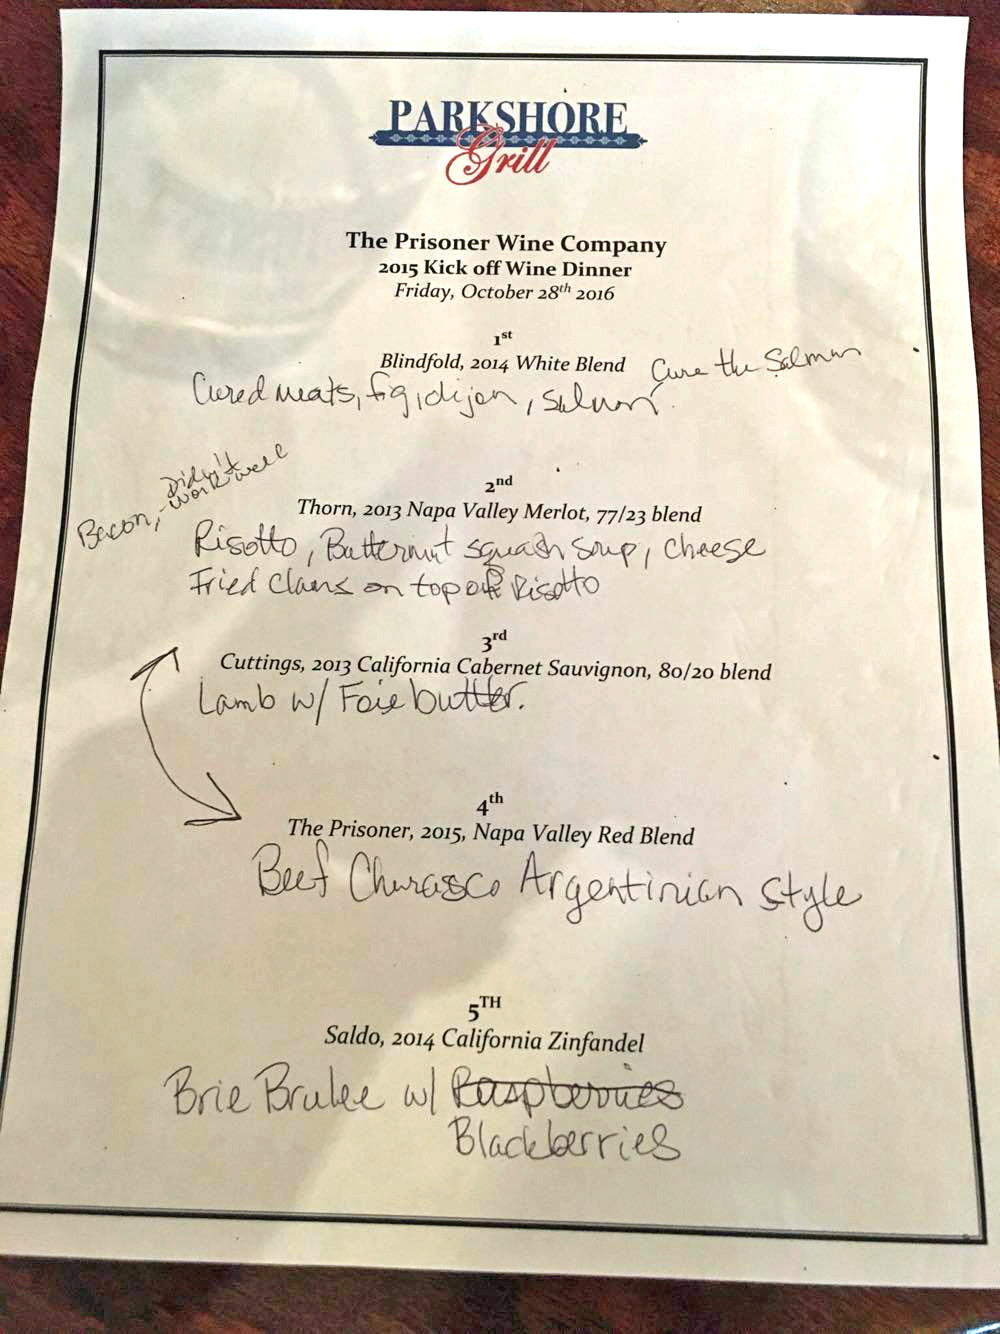 PARKSHORE
Grill
The Prisoner Wine Company
2015 Kick off Wine Dinner
Friday, October 28th 2016
1st
Blindfold, 2014 White Blend
Cure the Salmon
Cured meats, fig, dijon, salmon
2nd
Thorn, 2013 Napa Valley Merlot, 77/23 blend
Bacon, - Didn't work well
Risotto, Butternut squash soup, cheese
Fried Clams on top of Risotto
3rd
Cuttings, 2013 California Cabernet Sauvignon, 80/20 blend
Lamb w/ Foie butter.
4th
The Prisoner, 2015, Napa Valley Red Blend
Beef Churasco Argentinian Style
5TH
Saldo, 2014 California Zinfandel
Brie Brulee w/ Raspberries
Blackberries